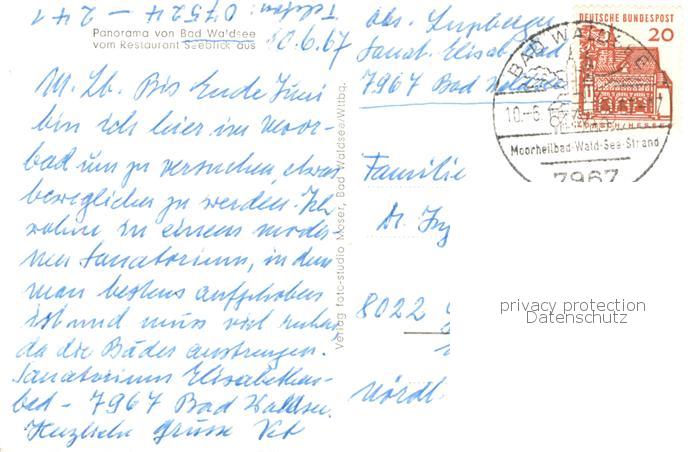 Telefon: 07524 - 2 - 41
Panorama von Bad Waldsee
vom Restaurant Seeblick aus
10.6.67
M. Lb. Bis Ende Juni
bin ich hier im Moor-
bad um zu versuchen, etwas
beweglicher zu werden. Ich
wohne in einem moder-
nen Sanatorium, in dem
man bestens aufgehoben
ist und muss viel ruhen
da die Bäder anstrengen.
Sanatorium Elisabethen-
bad - 7967 Bad Waldsee.
Herzliche Grüsse
Verlag foto-studio Moser, Bad Waldsee/Wttbg.
Abs.
Sanat. Elisab. Bad
7967 Bad Waldsee
DEUTSCHE BUNDESPOST
20
BAD WALDSEE
10.-6.
Moorheilbad-Wald-See-Strand
7967
Familie
Dr. Ing
8022
Nördl
privacy protection
Datenschutz